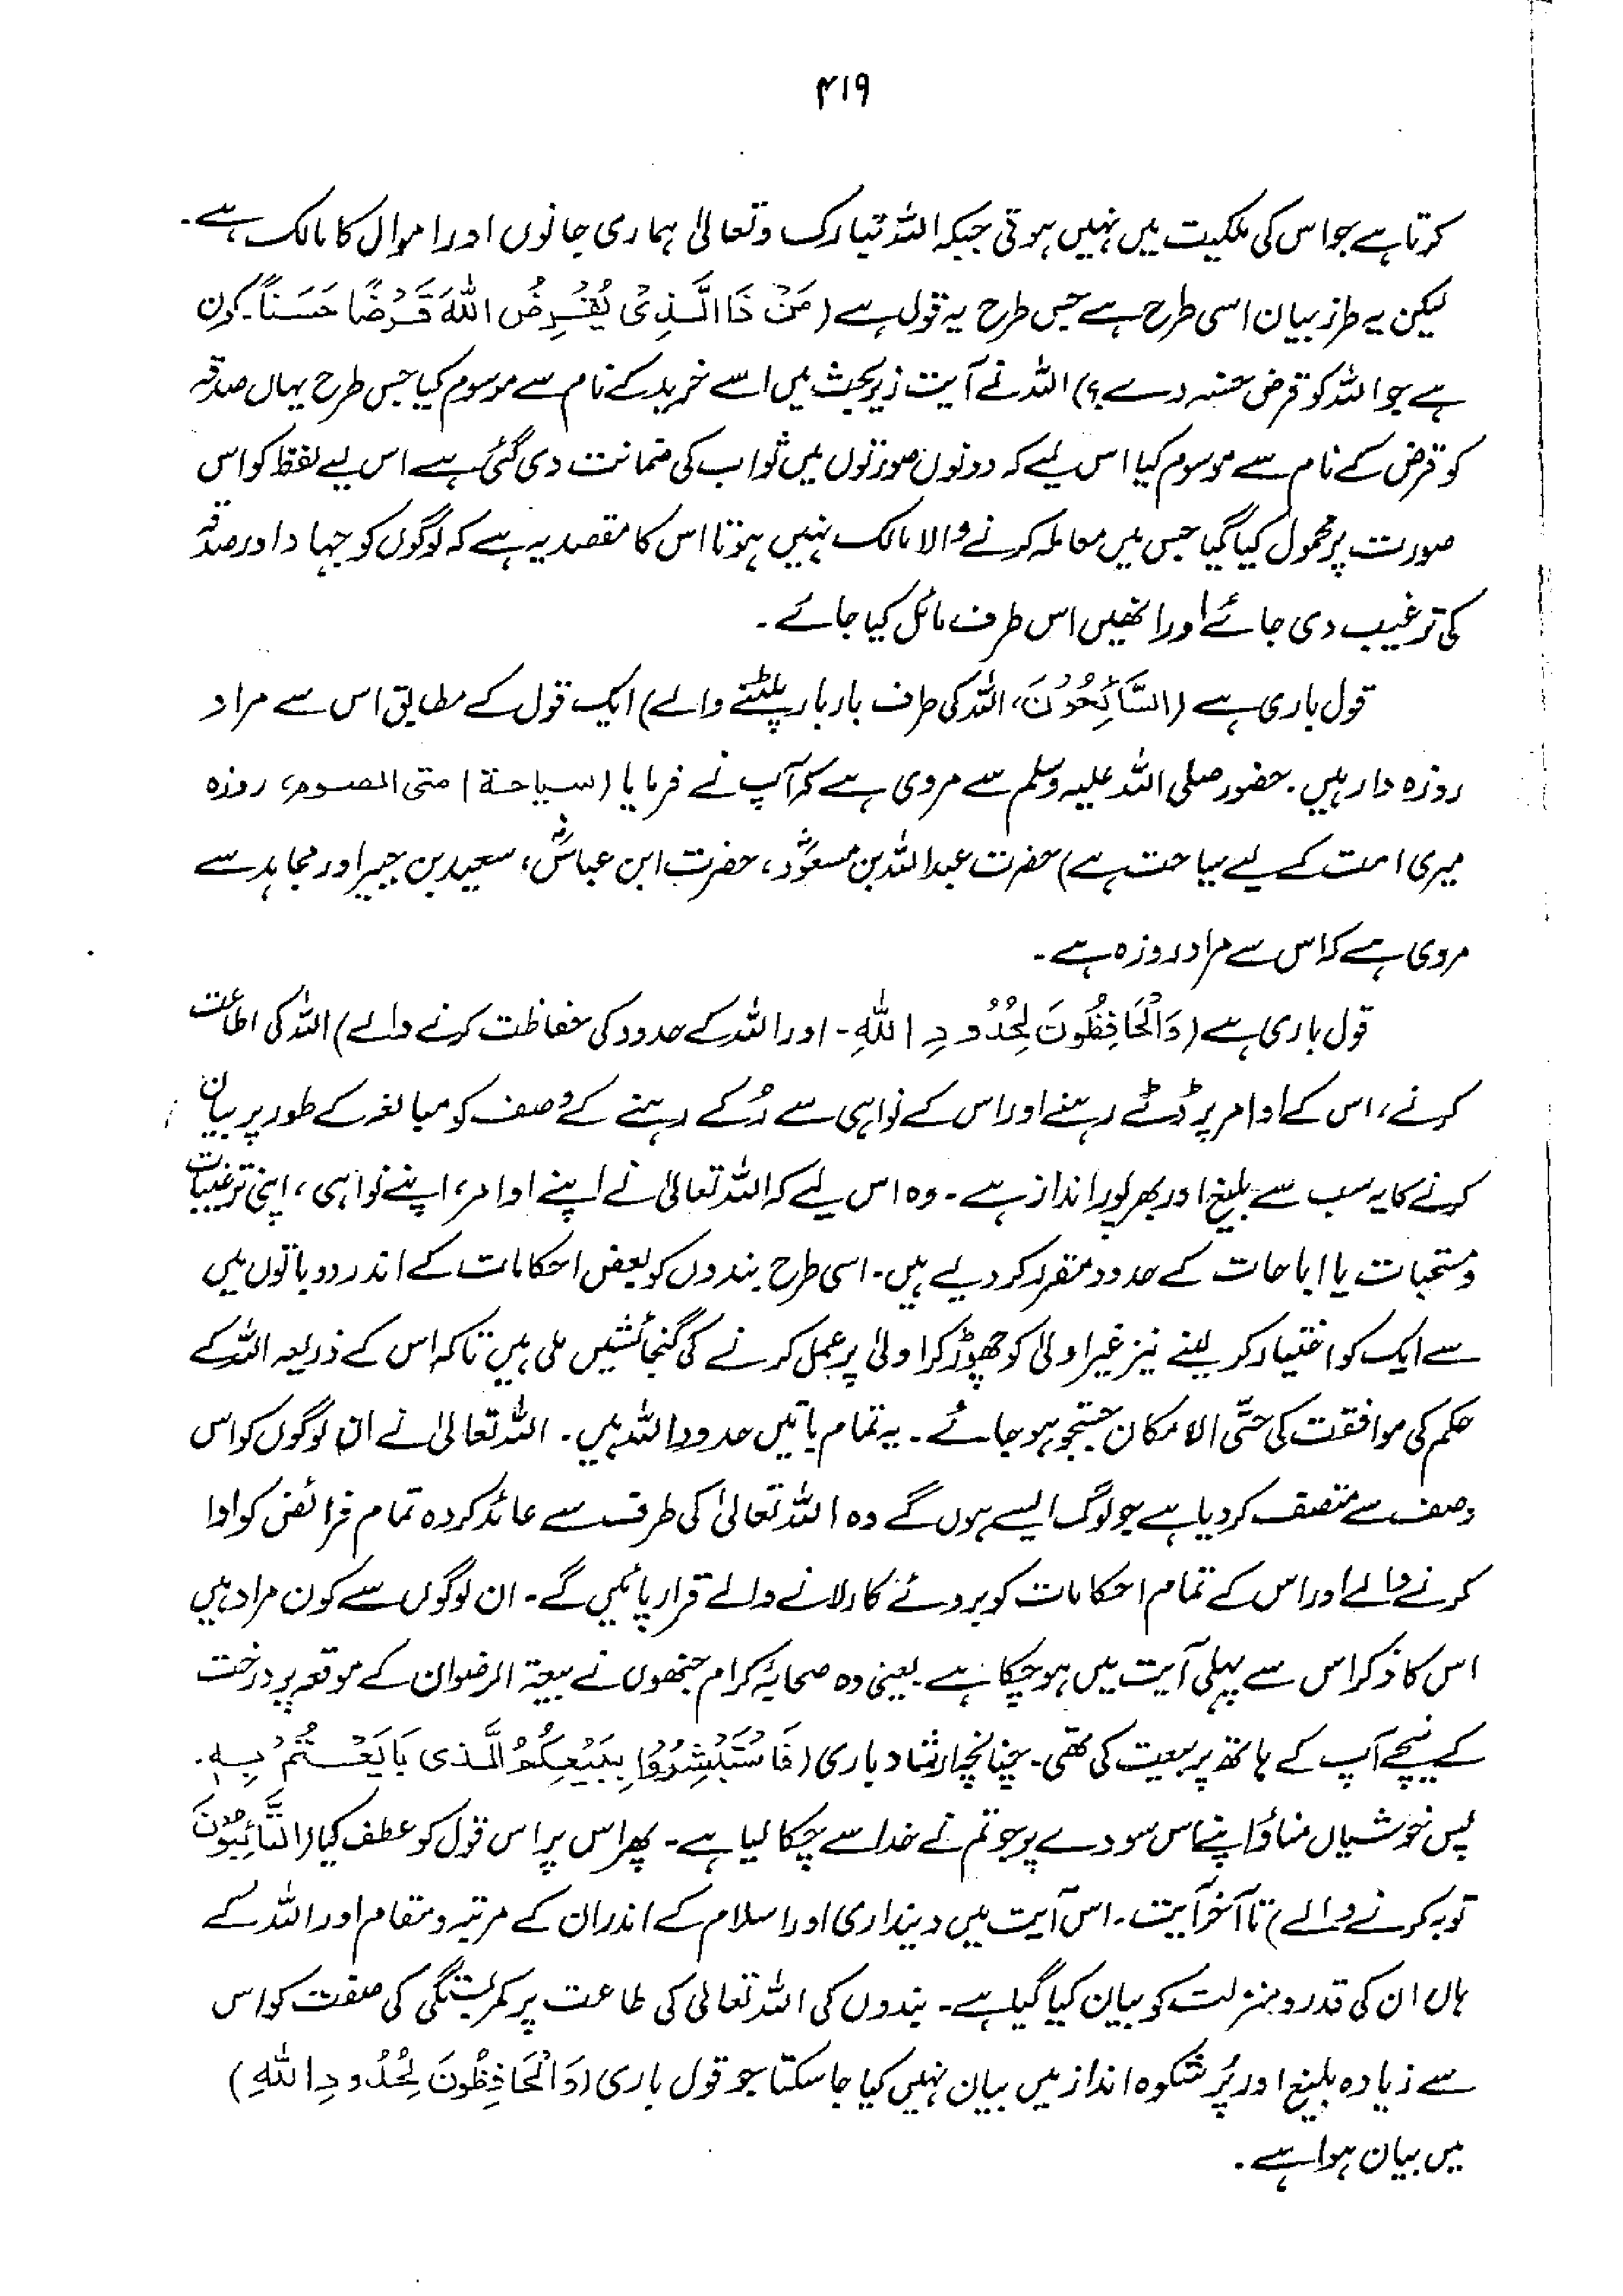 ۴۱۹
کرتا ہے جو اس کی ملکیت میں نہیں ہوتی جبکہ اللہ تبارک وتعالیٰ ہماری جانوں اور اموال کا مالک ہے۔
لیکن یہ طرز بیان اسی طرح ہے جس طرح یہ قول ہے (مَنْ ذَا الَّذِیْ یُقْرِضُ اللّٰہَ قَرْضًا حَسَنًا۔ کون
ہے جو اللہ کو قرض حسنہ دے؟) اللہ نے آیت زیر بحث میں اسے خرید کے نام سے موسوم کیا جس طرح یہاں صدقہ
کو قرض کے نام سے موسوم کیا اس لیے کہ دونوں صورتوں میں ثواب کی ضمانت دی گئی ہے اس لیے لفظ کو اس
صورت پر محمول کیا گیا جس میں معاملہ کرنے والا مالک نہیں ہوتا اس کا مقصد یہ ہے کہ لوگوں کو جہاد اور صدقہ
کی ترغیب دی جائے اور انھیں اس طرف مائل کیا جائے۔
قول باری ہے (السَّائِحُوْنَ، اللہ کی طرف بار بار پلٹنے والے) ایک قول کے مطابق اس سے مراد
روزہ دار ہیں۔ حضور صلی اللہ علیہ وسلم سے مروی ہے کہ آپ نے فرمایا (سیاحة امتی الصوم، روزہ
میری امت کے لیے سیاحت ہے) حضرت عبداللہ بن مسعودؓ، حضرت ابن عباسؓ، سعید بن جبیر اور مجاہد سے
مروی ہے کہ اس سے مراد روزہ ہے۔
قول باری ہے (وَالْحَافِظُونَ لِحُدُودِ اللّٰهِ۔ اور اللہ کے حدود کی حفاظت کرنے والے) اللہ کی اطاعت
کرنے، اس کے اوامر پر ڈٹے رہنے اور اس کے نواہی سے رُکے رہنے کے وصف کو مبالغہ کے طور پر بیان
کرنے کا یہ سب سے بلیغ اور بھرپور انداز ہے۔ وہ اس لیے کہ اللہ تعالیٰ نے اپنے اوامر، اپنے نواہی، اپنی ترغیبات
و مستحبات یا اباحات کے حدود مقرر کر دیے ہیں۔ اسی طرح بندوں کو بعض احکامات کے اندر دو باتوں میں
سے ایک کو اختیار کر لینے نیز غیر اولیٰ کو چھوڑ کر اولیٰ پر عمل کرنے کی گنجائشیں ملی ہیں تاکہ اس کے ذریعہ اللہ کے
حکم کی موافقت کی حتّی الامکان جستجو ہو جائے۔ یہ تمام باتیں حدود اللہ ہیں۔ اللہ تعالیٰ نے ان لوگوں کو اس
وصف سے متصف کر دیا ہے جو لوگ ایسے ہوں گے وہ اللہ تعالیٰ کی طرف سے عائد کردہ تمام فرائض کو ادا
کرنے والے اور اس کے تمام احکامات کو بروئے کار لانے والے قرار پائیں گے۔ ان لوگوں سے کون مراد ہیں
اس کا ذکر اس سے پہلی آیت میں ہو چکا ہے یعنی وہ صحابۂ کرام جنھوں نے بیعۃ الرضوان کے موقعہ پر درخت
کے نیچے آپ کے ہاتھ پر بیعت کی تھی۔ چنانچہ ارشاد باری (فَاسْتَبْشِرُوْا بِبَیْعِکُمُ الَّذی بَایَعْتُمْ بِہٖ۔
پس خوشیاں مناؤ اپنے اس سودے پر جو تم نے خدا سے چکا لیا ہے۔ پھر اس پر اس قول کو عطف کیا (التَّائِبُونَ
توبہ کرنے والے) تا آخر آیت۔ اس آیت میں دینداری اور اسلام کے اندر ان کے مرتبہ و مقام اور اللہ کے
ہاں ان کی قدر و منزلت کو بیان کیا گیا ہے۔ بندوں کی اللہ تعالیٰ کی طاعت پر کمربستگی کی صفت کو اس
سے زیادہ بلیغ اور پُر شکوہ انداز میں بیان نہیں کیا جا سکتا جو قول باری (وَالْحَافِظُونَ لِحُدُودِ اللّٰهِ)
میں بیان ہوا ہے۔